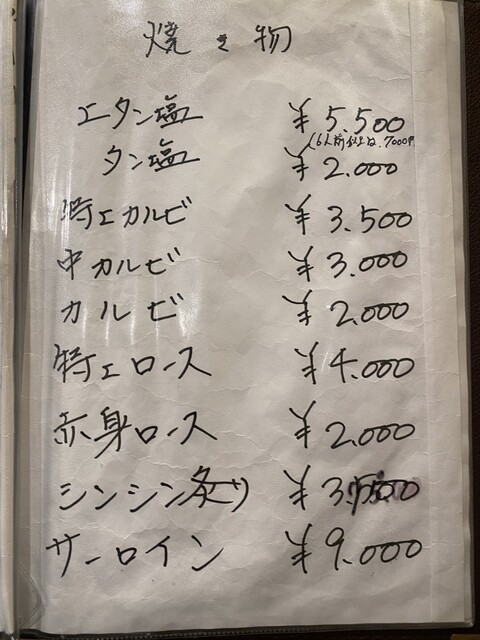 焼き物
上タン塩 ¥5.500
(6人前以上は、7000円
タン塩 ¥2.000
特上カルビ ¥3.500
中カルビ ¥3.000
カルビ ¥2.000
特上ロース ¥4.000
赤身ロース ¥2.000
シンシン炙り ¥3.500
サーロイン ¥9.000